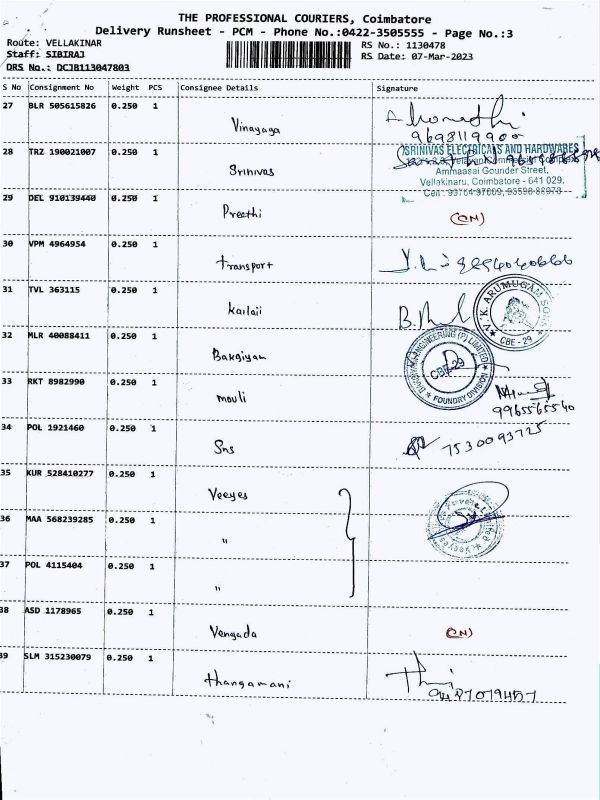 THE PROFESSIONAL COURIERS, Coimbatore
Delivery Runsheet - PCM - Phone No.:0422-3505555 - Page No.:3
Route: VELLAKINAR
Staff: SIBIRAJ
DRS No.: DCJB113047803
RS No.: 1130478
RS Date: 07-Mar-2023
S No Consignment No Weight PCS Consignee Details Signature
27 BLR 505615826 0.250 1 Vinayaga
9698119900
28 TRZ 190021007 0.250 1 Srinivas
SRINIVAS ELECTRICALS AND HARDWARES
Ammaasai Gounder Street,
Vellakinaru, Coimbatore - 641 029.
29 DEL 910139440 0.250 1 Preethi (CN)
30 VPM 4964954 0.250 1 transport
31 TVL 363115 0.250 1 Kailaji
V.K. ARUMUGAM SONS
CBE - 29
32 MLR 40088411 0.250 1 Bakgiyam
ENGINEERING (P) LIMITED
CBE-29
FOUNDRY DIVISION
33 RKT 8982990 0.250 1 mouli
9965565540
34 POL 1921460 0.250 1 Sns 7530093725
35 KUR 528410277 0.250 1 Veeyes
36 MAA 568239285 0.250 1 "
37 POL 4115404 0.250 1 "
38 ASD 1178965 0.250 1 Vengada (CN)
39 SLM 315230079 0.250 1 thangamani
9487079457